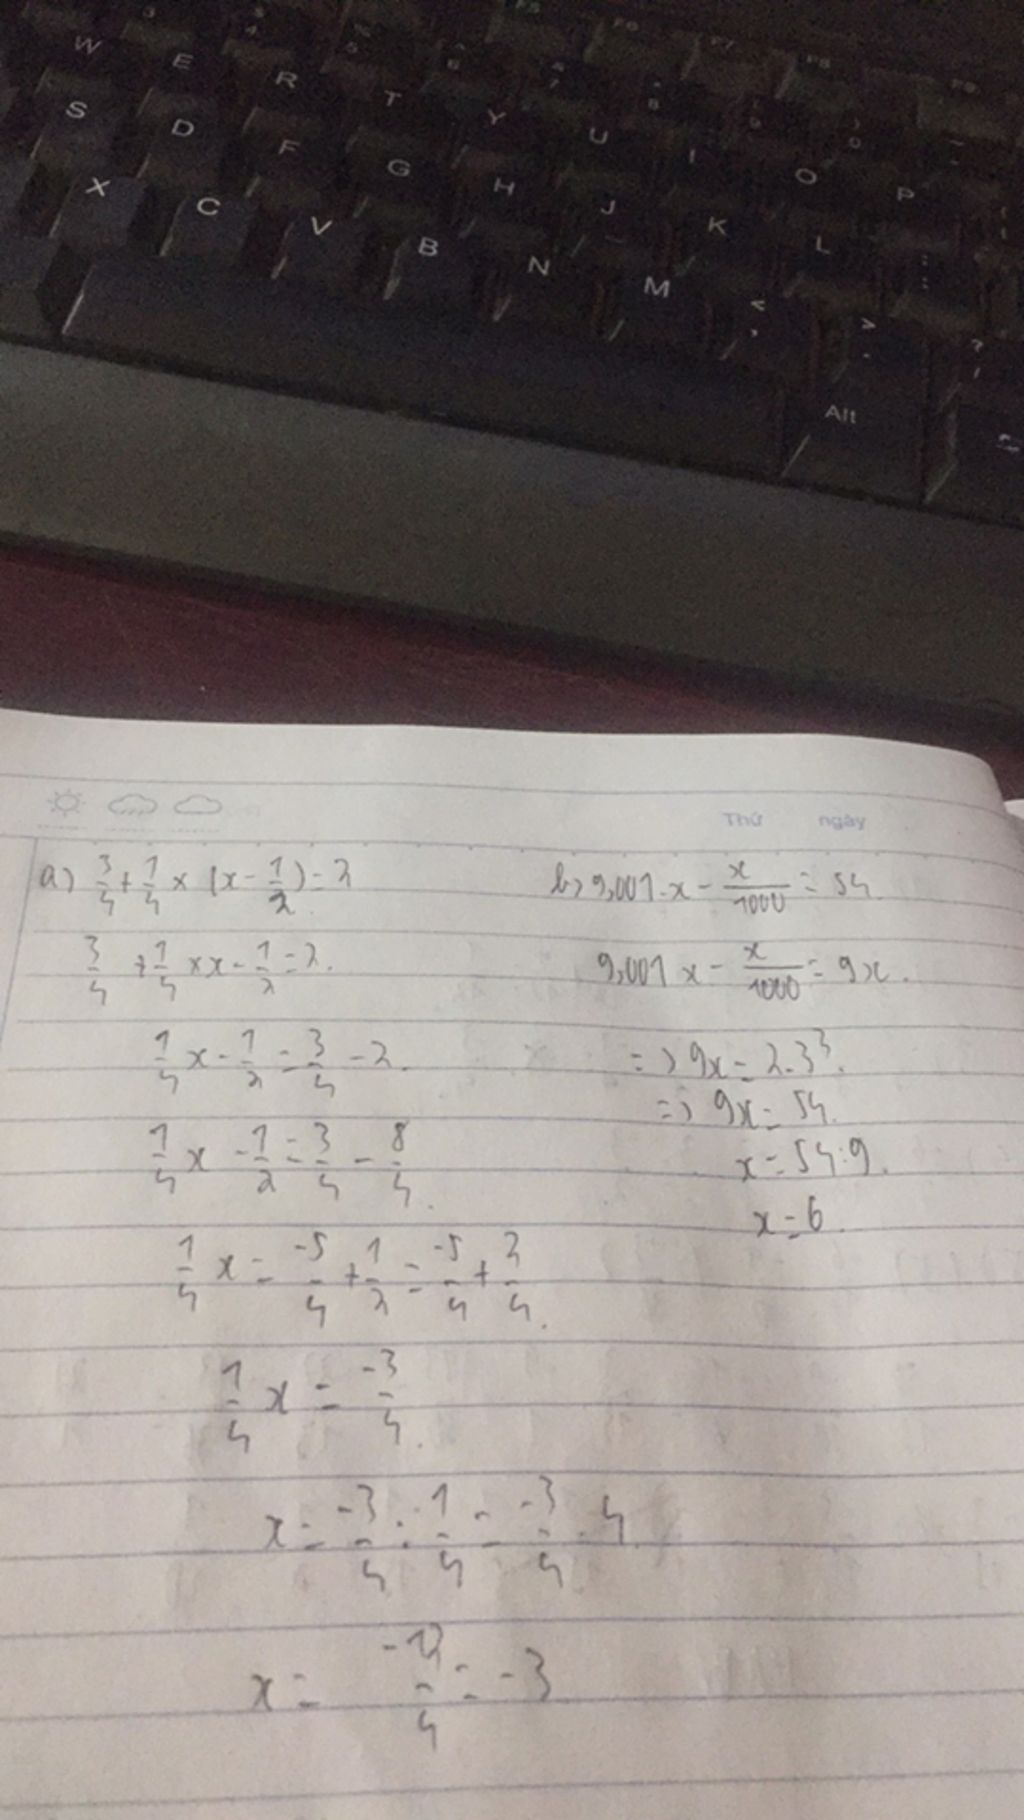 F5 F6 F7 F8 F9
W E R T Y U I O P
S D F G H J K L
X C V B N M < , > .
Alt
Thứ ngày
a) 3/4 + 1/4 × (x - 1/2) = 2
3/4 + 1/4 × x - 1/2 = 2.
1/4 x - 1/2 = 3/4 - 2.
1/4 x - 1/2 = 3/4 - 8/4.
1/4 x = -5/4 + 1/2 = -5/4 + 2/4.
1/4 x = -3/4.
x = -3/4 : 1/4 = -3/4 . 4
x = -12/4 = -3
b) 9,001.x - x/1000 = 54
9,001 x - x/1000 = 9x.
=> 9x = 2.3³.
=> 9x = 54.
x = 54:9.
x = 6.